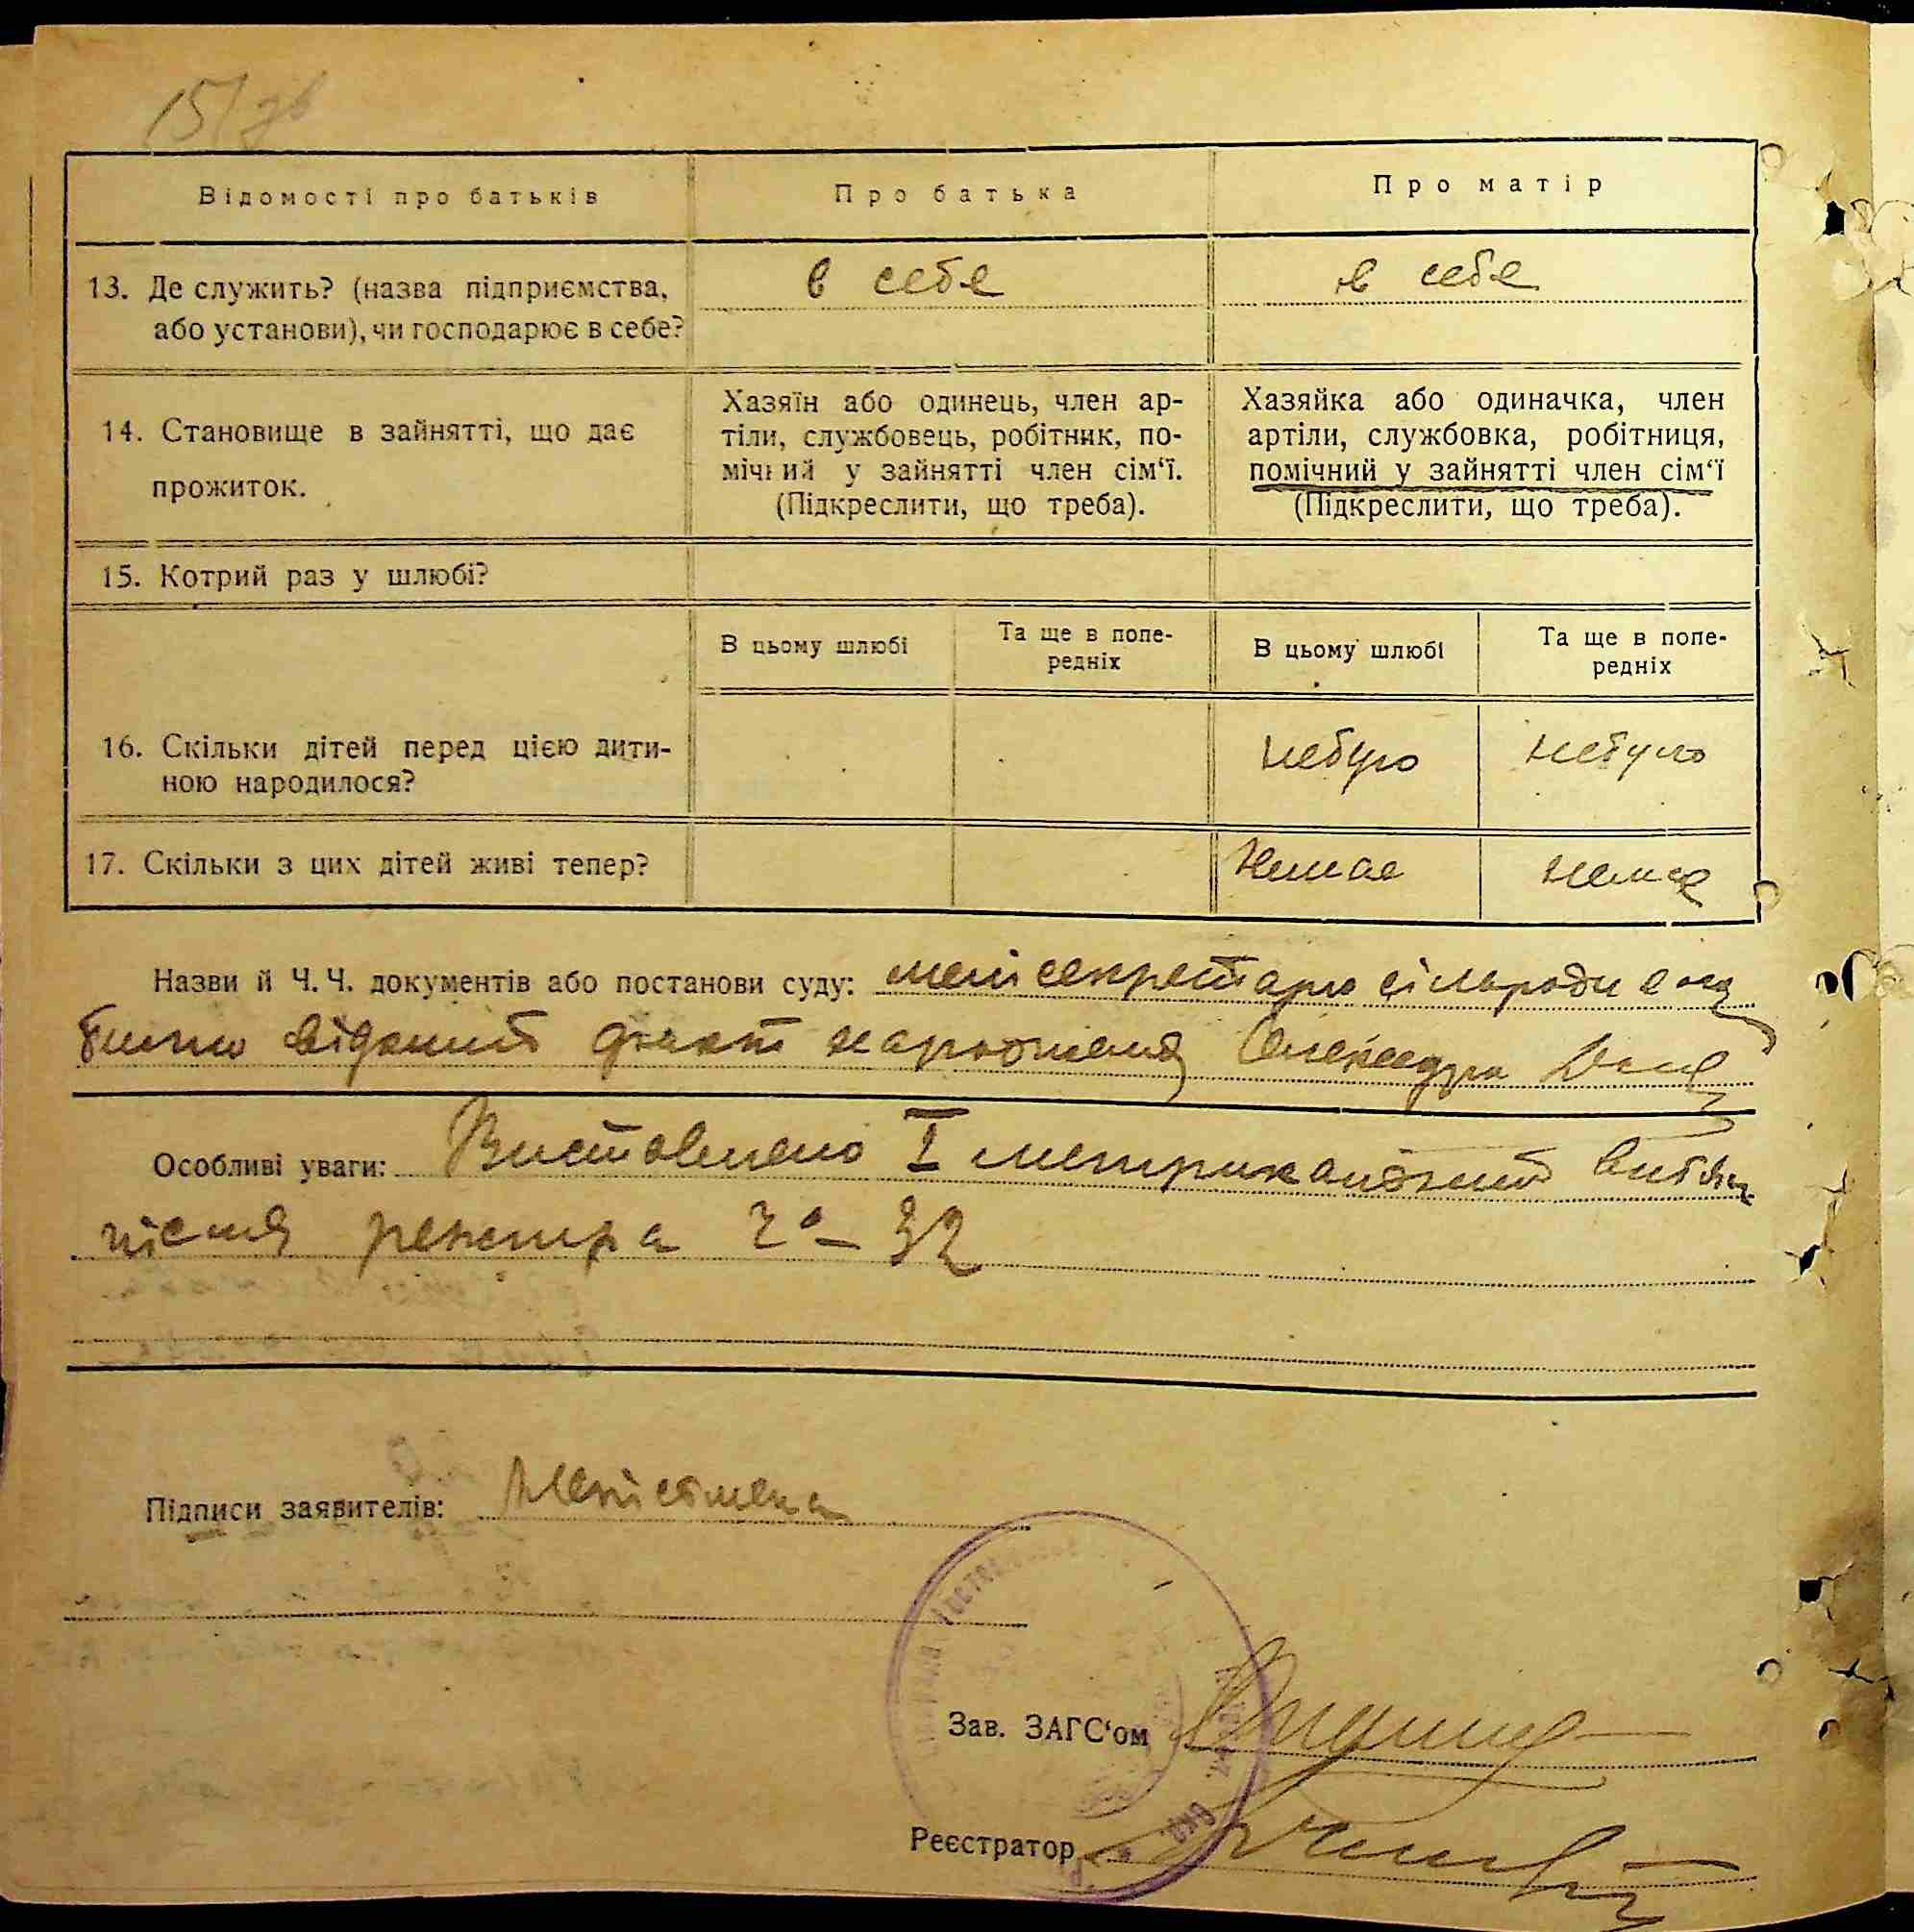 15/зв
Відомості про батьків
Про батька
Про матір
13. Де служить? (назва підприємства,
або установи), чи господарює в себе?
в себе
в себе
14. Становище в зайнятті, що дає
прожиток.
Хазяїн або одинець, член ар-
тіли, службовець, робітник, по-
мічний у зайнятті член сім‘ї.
(Підкреслити, що треба).
Хазяйка або одиначка, член
артіли, службовка, робітниця,
помічний у зайнятті член сім‘ї
(Підкреслити, що треба).
15. Котрий раз у шлюбі?
В цьому шлюбі
Та ще в попе-
редніх
В цьому шлюбі
Та ще в попе-
редніх
16. Скільки дітей перед цією дити-
ною народилося?
небуло
небуло
17. Скільки з цих дітей живі тепер?
Немає
немає
Назви й Ч. Ч. документів або постанови суду: мені секретарю сільради
відомий факт народження
Особливі уваги: Виставлено I
після
32
Підписи заявителів:
Зав. ЗАГС‘ом
Реєстратор